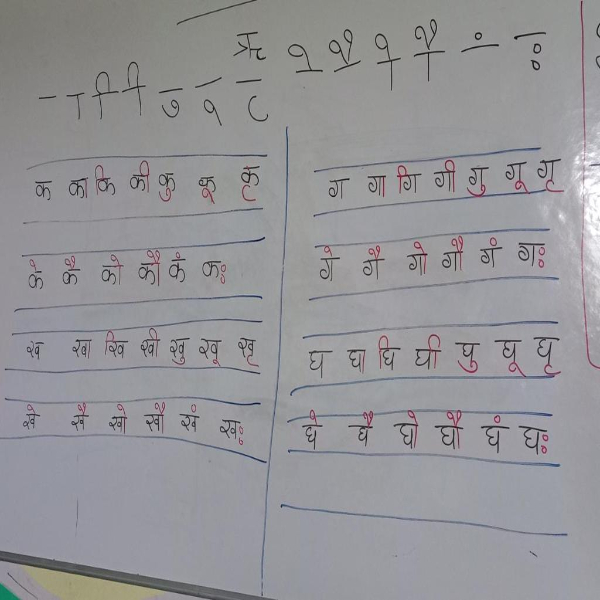 ऋ
क का कि की कु कू कृ
के कै को कौ कं कः
ख खा खि खी खु खू खृ
खे खै खो खौ खं खः
ग गा गि गी गु गू गृ
गे गै गो गौ गं गः
घ घा घि घी घु घू घृ
घे घै घो घौ घं घः